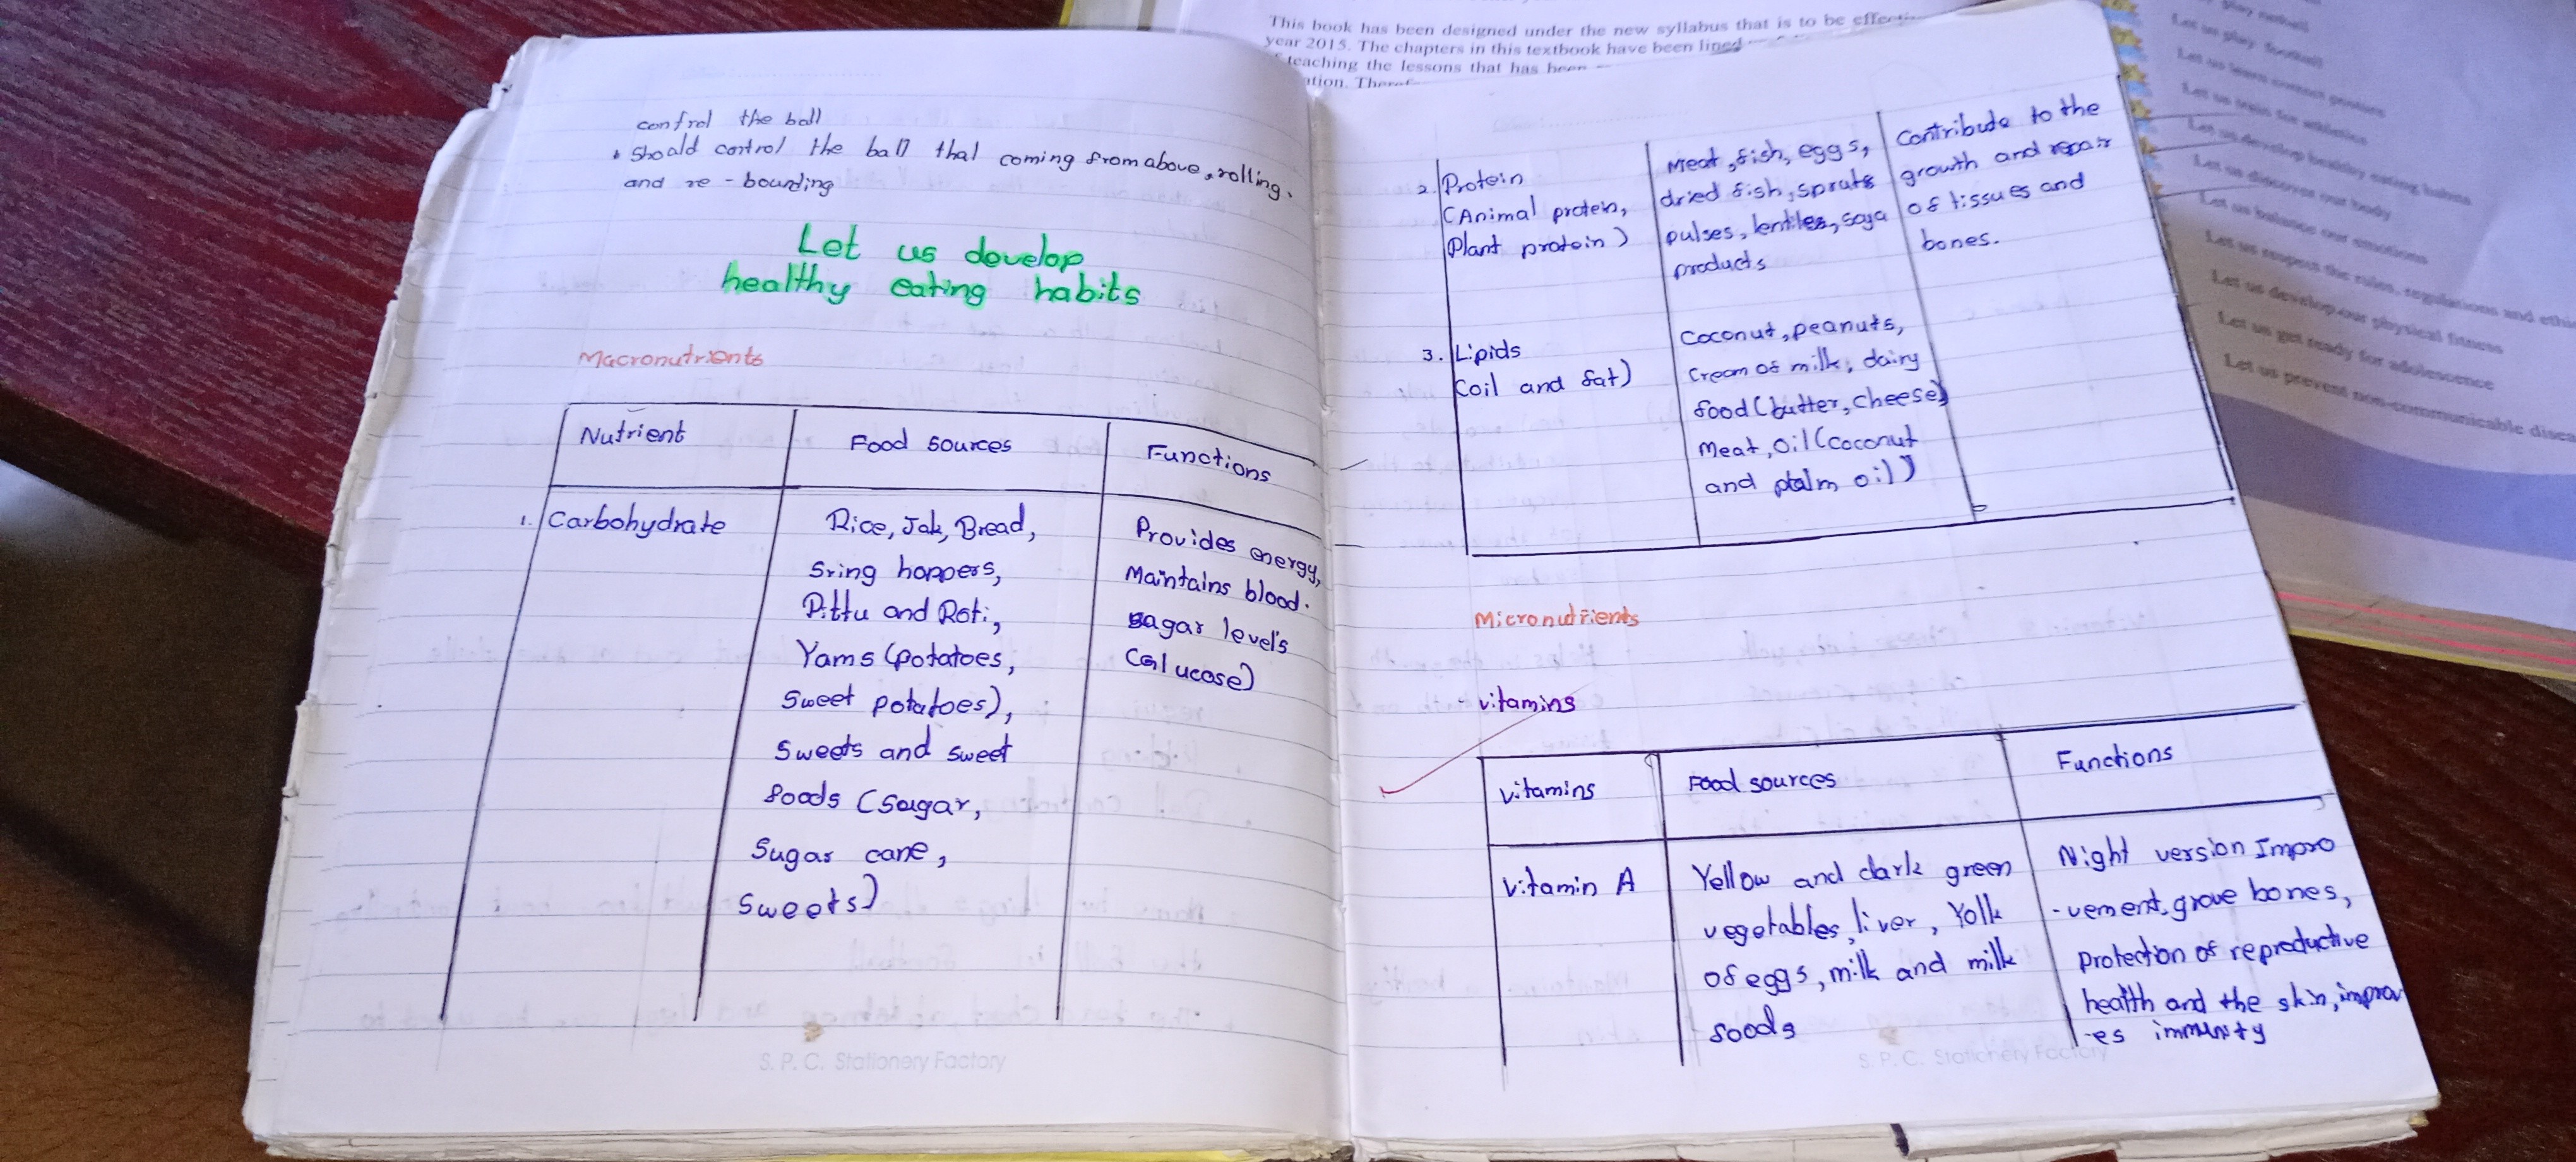 This book has been designed under the new syllabus that is to be
year 2015. The chapters in this textbook have been lined
teaching the lessons that has been
control the ball
• Should control the ball that coming from above, rolling.
and re - bounding
Let us develop
healthy eating habits
Macronutrients
Nutrient
Food sources
Functions
1. Carbohydrate
Rice, Jak, Bread,
Sring hoppers,
Pittu and Roti,
Yams (potatoes,
Sweet potatoes),
Sweets and sweet
foods (Sugar,
Sugar cane,
Sweets)
Provides energy,
Maintains blood.
sugar level's
(Glucose)
S. P. C. Stationery Factory
2. Protein
(Animal protein,
Plant protein)
Meat, fish, eggs,
dried fish, sprats
pulses, lentiles, soya
products
Contribute to the
growth and repair
of tissues and
bones.
3. Lipids
(oil and fat)
Coconut, peanuts,
Cream of milk, dairy
food (butter, cheese)
Meat, oil (coconut
and palm oil)
Micronutrients
- vitamins
vitamins
Food sources
Functions
vitamin A
Yellow and dark green
vegetables, liver, Yolk
of eggs, milk and milk
foods
Night version Impro
-vement, grove bones,
protection of reproductive
health and the skin, improv
-es immunity
S. P. C. Stationery Factory
Let us play football
Let us develop healthy eating habits
Let us discover our body
Let us balance our emotions
Let us respect the rules, regulations and
Let us develop our physical fitness
Let us get ready for adolescence
Let us prevent non-communicable